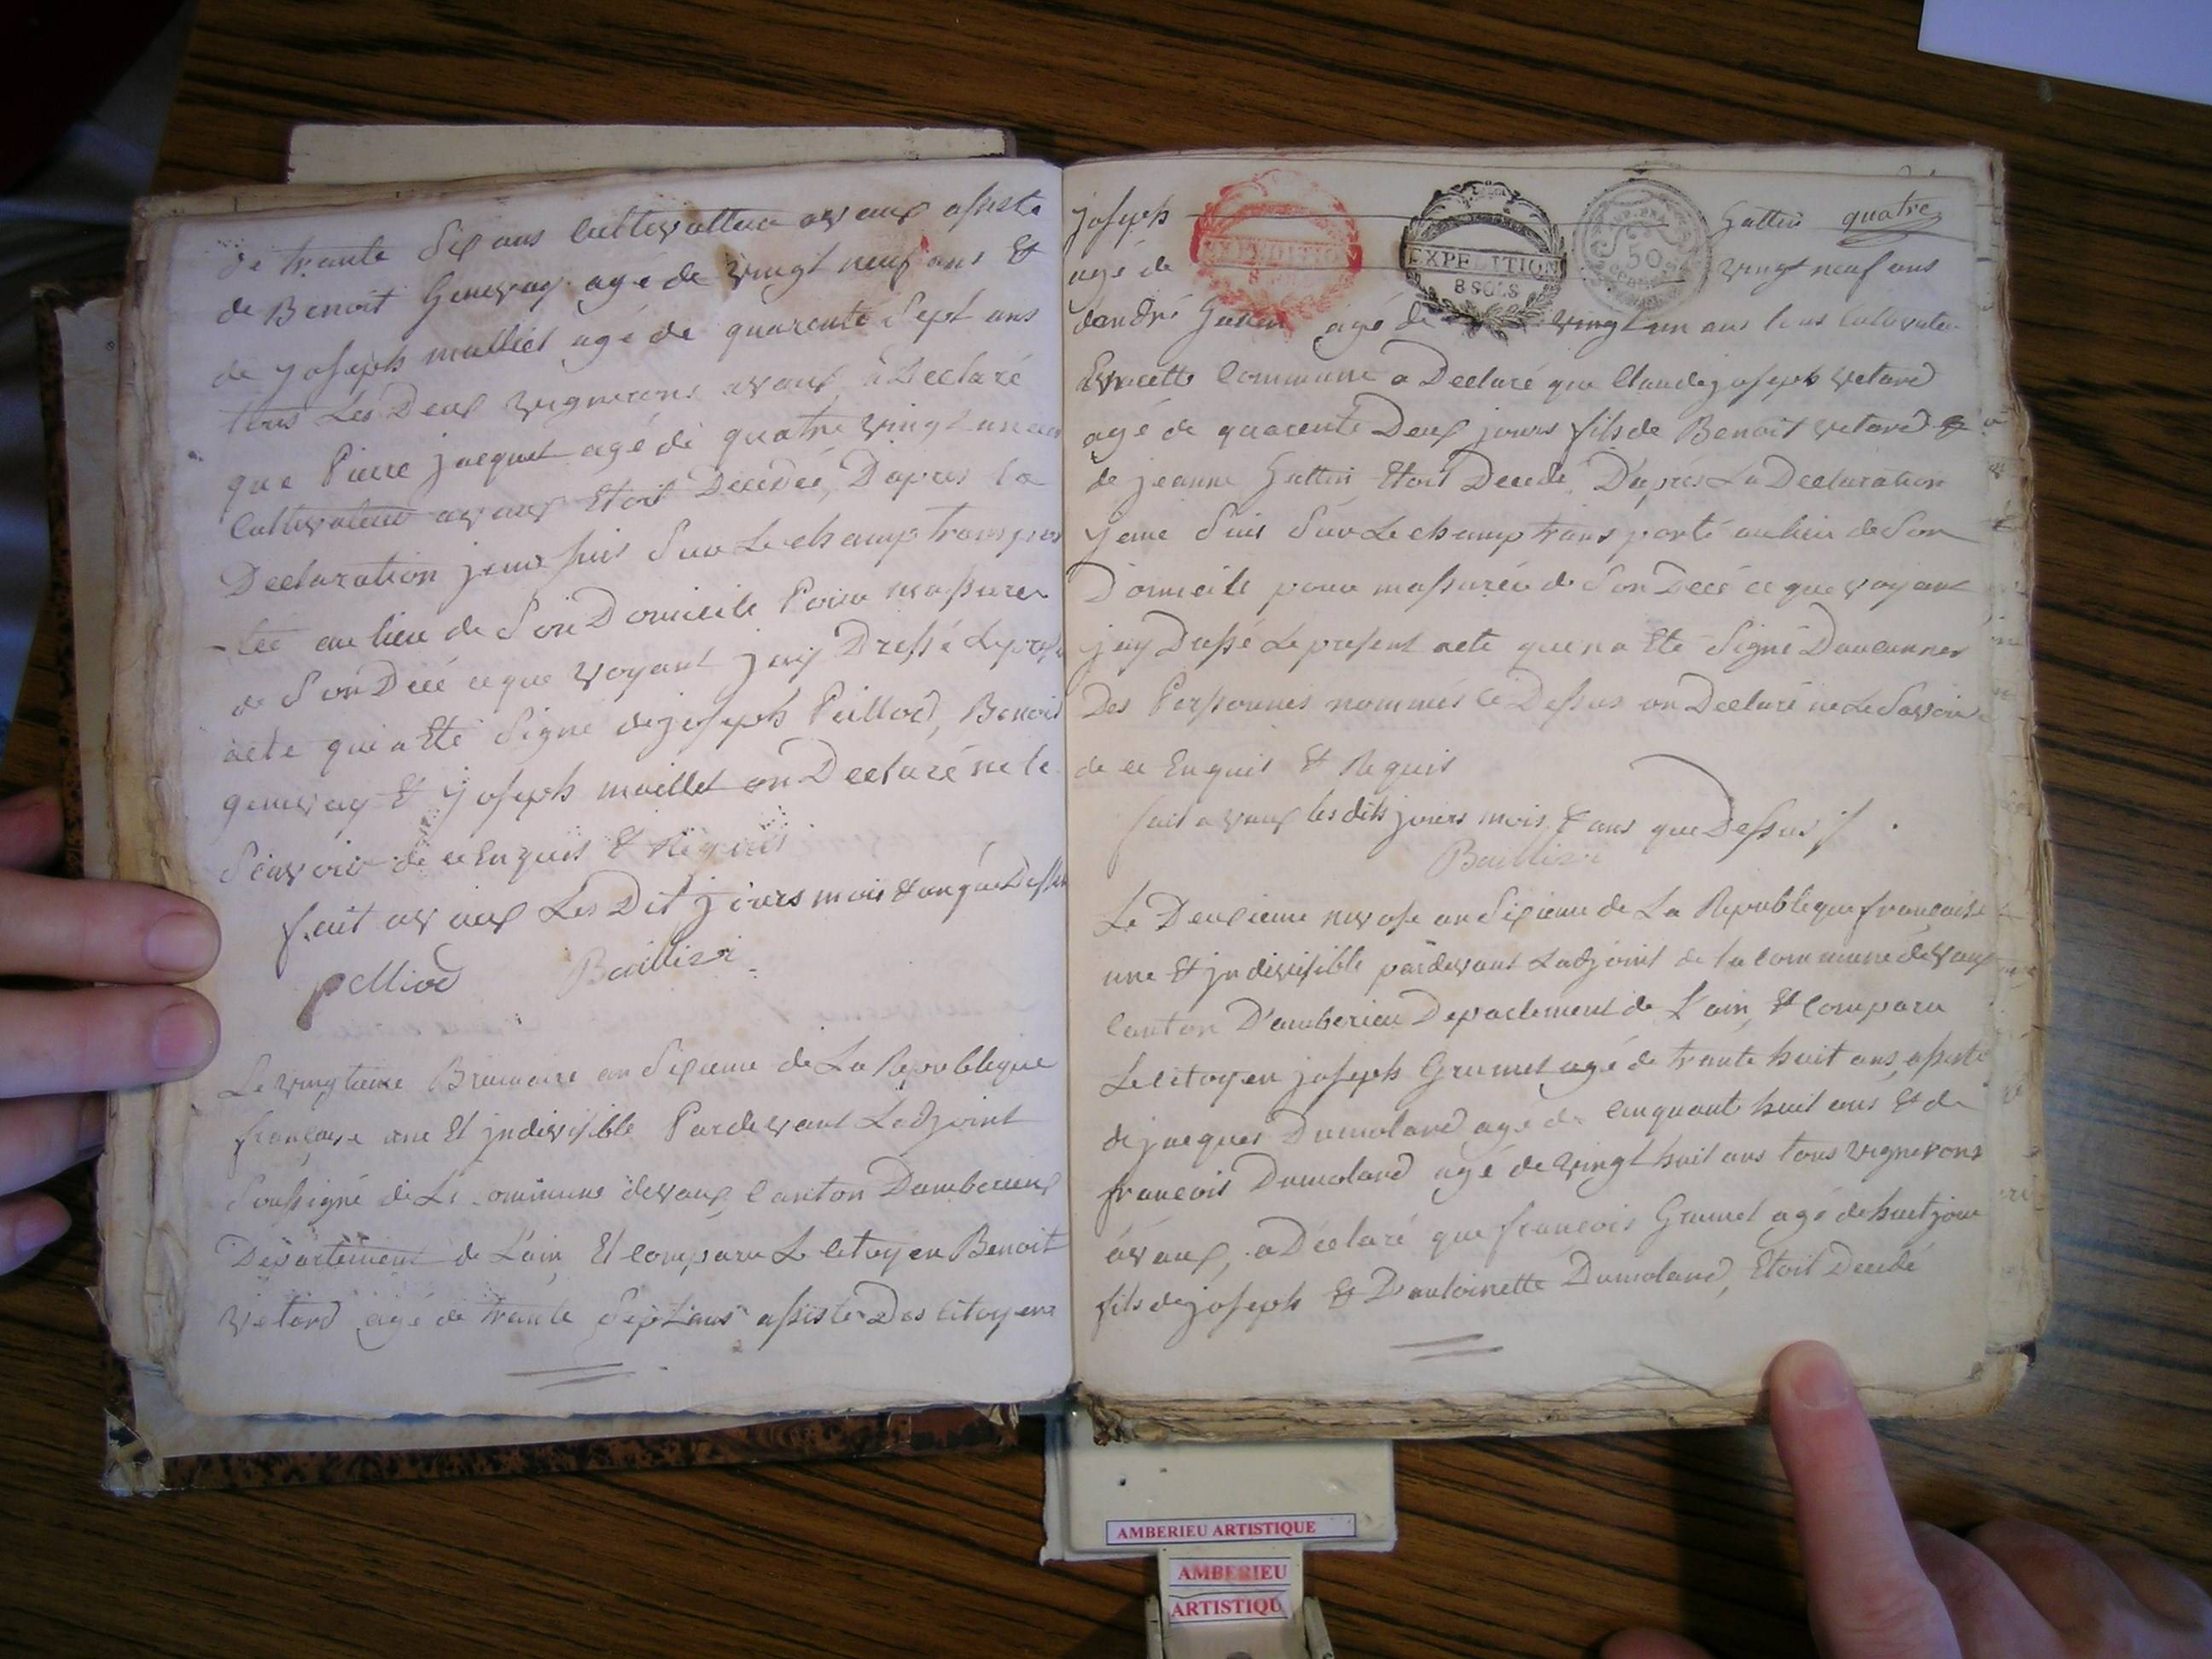 de trante Six ans Cultivatteur a vaux assiste
de Benoit Genevay agé de vingt neuf ans Et
de joseph malliet agé de quarente Sept ans
tous Les Deux vignerons a vaux à Declaré
que Pierre jacquet agé de quatre vingt un ans
Cultivateur a vaux Etoit Decedé, Dapres la
Declaration jeme suis Sur Le champ transpor
-tee au lieu de Son Domicile Pour massurer
de Son Decé ce que voyant jay Dressé Le pres
acte qui a Eté Signé de joseph Peillod, Benoit
genevay Et joseph maillet on Declaré ne le
Scavoir de ce Enquis Et Requis
fait a vaux Les Dit jours mois Et an que Dessus
pelliod Baillizi
Le vingtieme Brumaire an Sixieme de La Republique
française une Et jndivisible Pardevant Ladjoint
Soussigné de La Commune de vaux Canton Damberieux
Departement de L'ain Et comparu Le Citoyen Benoit
vetard agé de trante Sept ans assiste Des Citoyens
joseph Guttin quatre
agé de vingt neuf ans
dandré Guttin agé de vingt un ans tous Cultivateur
commune a Declaré que Claude joseph vetard
agé de quarente Deux jours fils de Benoit vetard &
de jeanne Guttin Etoit Decedé, D'apres La Declaration
jeme Suis Sur Le champ trans porté au lieu de Son
Domicile pour massurer de Son Decé ce que voyant
jay Dressé Le present acte que na Eté Signé Daucunner
Des Personnes nommés Ce Dessus on Declaré ne Le Savoir
de ce Enquis Et Requis
fait a vaux les dits jours mois & ans que Dessus
Baillizi
Le Deuxieme nivose an Sixieme de La Republique française
une Et jndivisible pardevant Ladjoint de la Commune de vaux
Canton D'amberieu Departement de L'ain, Et Comparu
Le Citoyen joseph Grumet agé de trante huit ans, assiste
de jacques Dumolard agé de Cinquante huit ans Et de
francois Dumolard agé de vingt huit ans tous vignerons
à vaux, a Déclaré que francois Grumet agé de huit jour
fils de joseph Et Dantoinette Dumolard, Etoit Decedé
EXPEDITION
EXPEDITION
8 SOLS
50
AMBERIEU ARTISTIQUE
AMBERIEU
ARTISTIQU